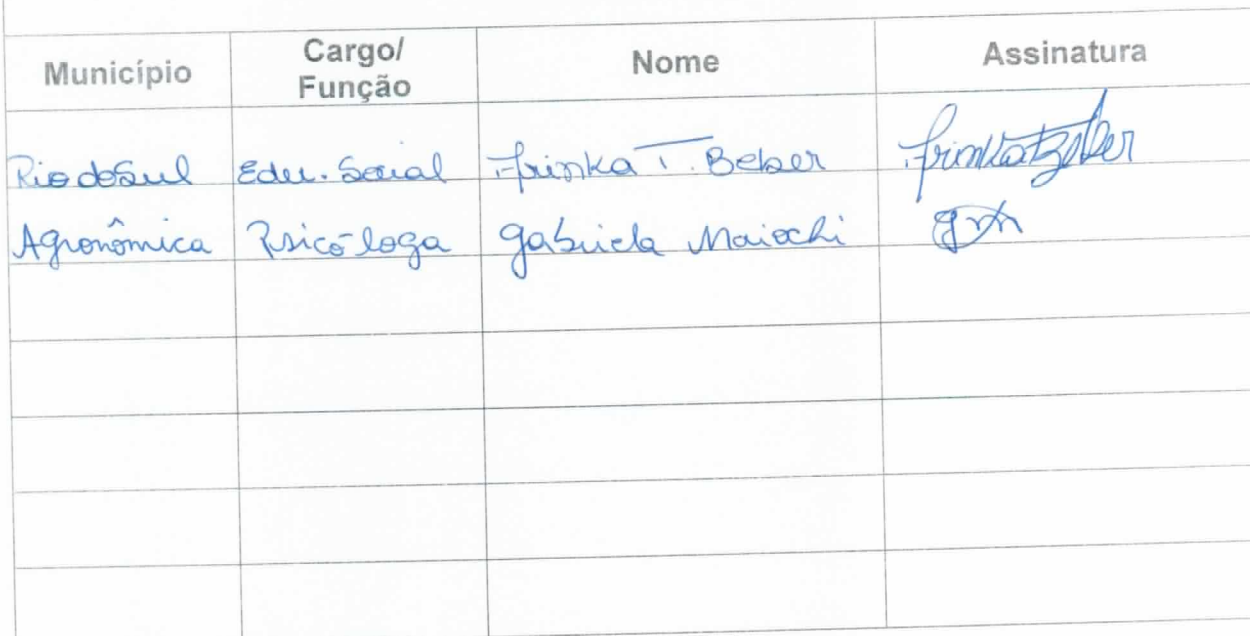 Município Cargo/ Função Nome Assinatura
Rio do Sul Edu. Social Frinka T. Beber
Agronômica Psicóloga Gabriela Maiochi